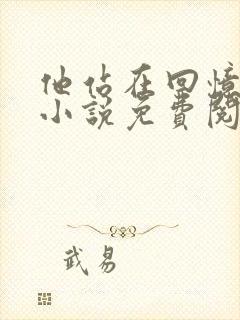 他佔在回憶
小說免費閱
武易